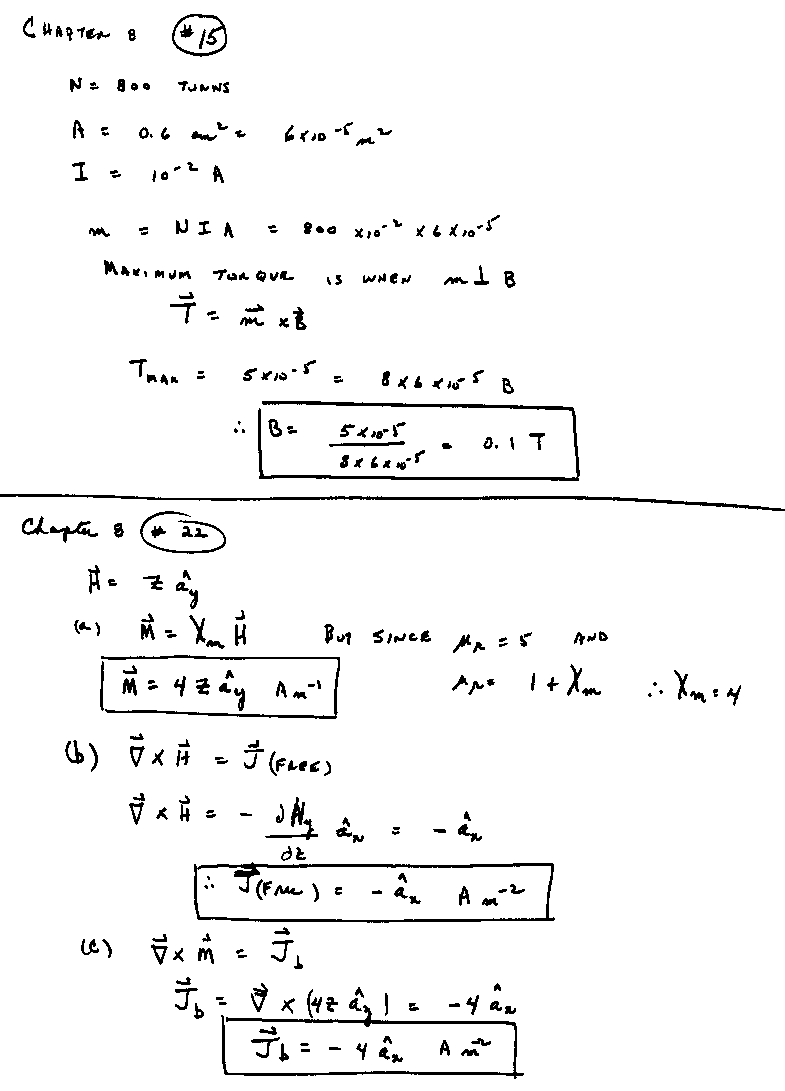 CHAPTER 8 #15
N = 800 TURNS
A = 0.6 cm² = 6×10⁻⁵ m²
I = 10⁻² A
m = N I A = 800 ×10⁻² × 6×10⁻⁵
MAXIMUM TORQUE IS WHEN m ⊥ B
T⃗ = m⃗ × B⃗
T_MAX = 5×10⁻⁵ = 8×6×10⁻⁵ B
∴ B = 5×10⁻⁵ / 8×6×10⁻⁵ = 0.1 T
Chapter 8 # 22
H⃗ = z â_y
(a) M⃗ = χ_m H⃗ BUT SINCE μ_R = 5 AND
M⃗ = 4 z â_y A m⁻¹ μ_R = 1 + χ_m ∴ χ_m = 4
(b) ∇⃗ × H⃗ = J⃗ (FREE)
∇⃗ × H⃗ = - ∂H_y/∂z â_x = - â_x
∴ J⃗ (Free) = - â_x A m⁻²
(c) ∇⃗ × M⃗ = J⃗_b
J⃗_b = ∇⃗ × (4z â_y) = -4 â_x
J⃗_b = - 4 â_x A m⁻²